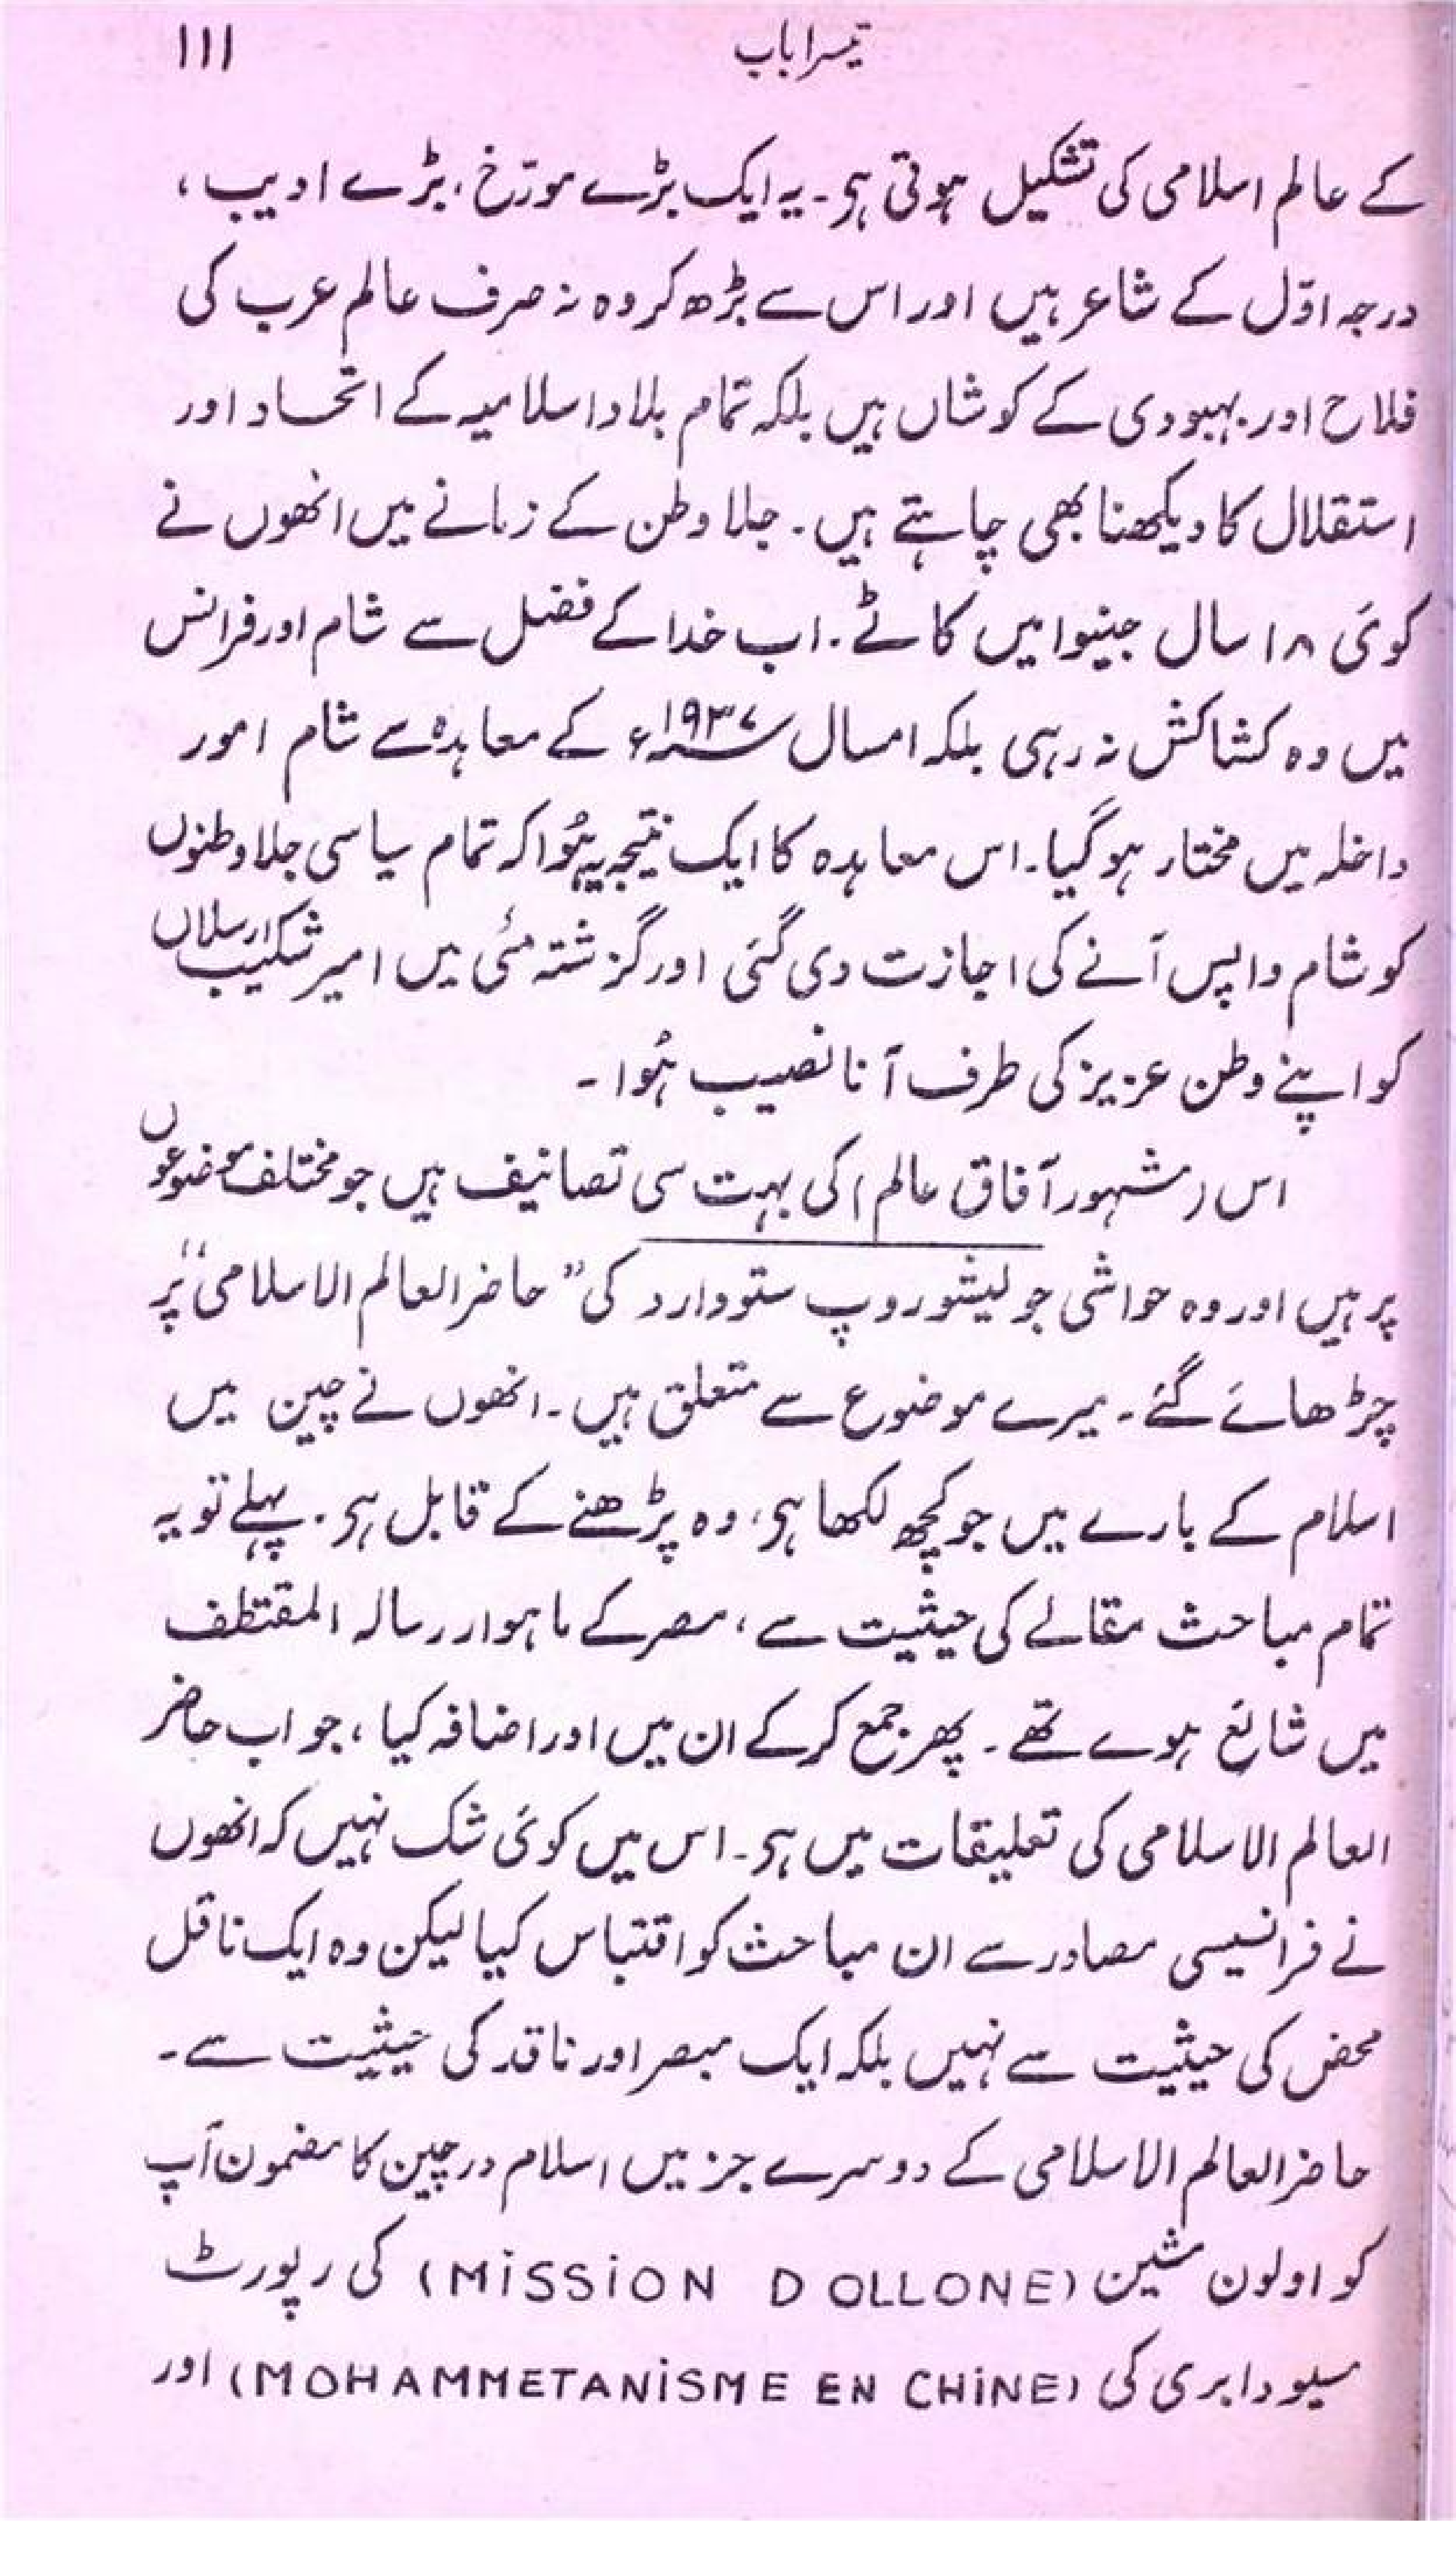 تیسرا باب ۱۱۱
کے عالم اسلامی کی تشکیل ہوتی ہی۔ یہ ایک بڑے مورّخ، بڑے ادیب،
درجہ اوّل کے شاعر ہیں اور اس سے بڑھ کر وہ نہ صرف عالم عرب کی
فلاح اور بہبودی کے کوشاں ہیں بلکہ تمام بلاد اسلامیہ کے اتحاد اور
استقلال کا دیکھنا بھی چاہتے ہیں۔ جلا وطن کے زمانے میں انھوں نے
کوئی ۱۸ سال جینوا میں کاٹے۔ اب خدا کے فضل سے شام اور فرانس
میں وہ کشاکش نہ رہی بلکہ امسال ۱۹۳۷ء کے معاہدہ سے شام امور
داخلہ میں مختار ہو گیا۔ اس معاہدہ کا ایک نتیجہ یہ ہُوا کہ تمام سیاسی جلا وطنوں
کو شام واپس آنے کی اجازت دی گئی اور گزشتہ مئی میں امیر شکیب ارسلاں
کو اپنے وطن عزیز کی طرف آنا نصیب ہُوا۔
اس (مشہور آفاق عالم) کی بہت سی تصانیف ہیں جو مختلف موضوعوں
پر ہیں اور وہ حواشی جو لیثوروپ ستودارد کی "حاضر العالم الاسلامی" پر
چڑھائے گئے۔ میرے موضوع سے متعلق ہیں۔ انھوں نے چین میں
اسلام کے بارے میں جو کچھ لکھا ہی، وہ پڑھنے کے قابل ہی۔ پہلے تو یہ
تمام مباحث مقالے کی حیثیت سے، مصر کے ماہوار رسالہ المقتطف
میں شائع ہوے تھے۔ پھر جمع کر کے ان میں اور اضافہ کیا، جو اب حاضر
العالم الاسلامی کی تعلیقات میں ہی۔ اس میں کوئی شک نہیں کہ انھوں
نے فرانسیسی مصادر سے ان مباحث کو اقتباس کیا لیکن وہ ایک ناقل
محض کی حیثیت سے نہیں بلکہ ایک مبصر اور ناقد کی حیثیت سے۔
حاضر العالم الاسلامی کے دوسرے جز میں اسلام در چین کا مضمون آپ
کو اولون مشین (MiSSiON D OLLONE) کی رپورٹ
سیو دابری کی (MOHAMMETANiSME EN CHiNE) اور